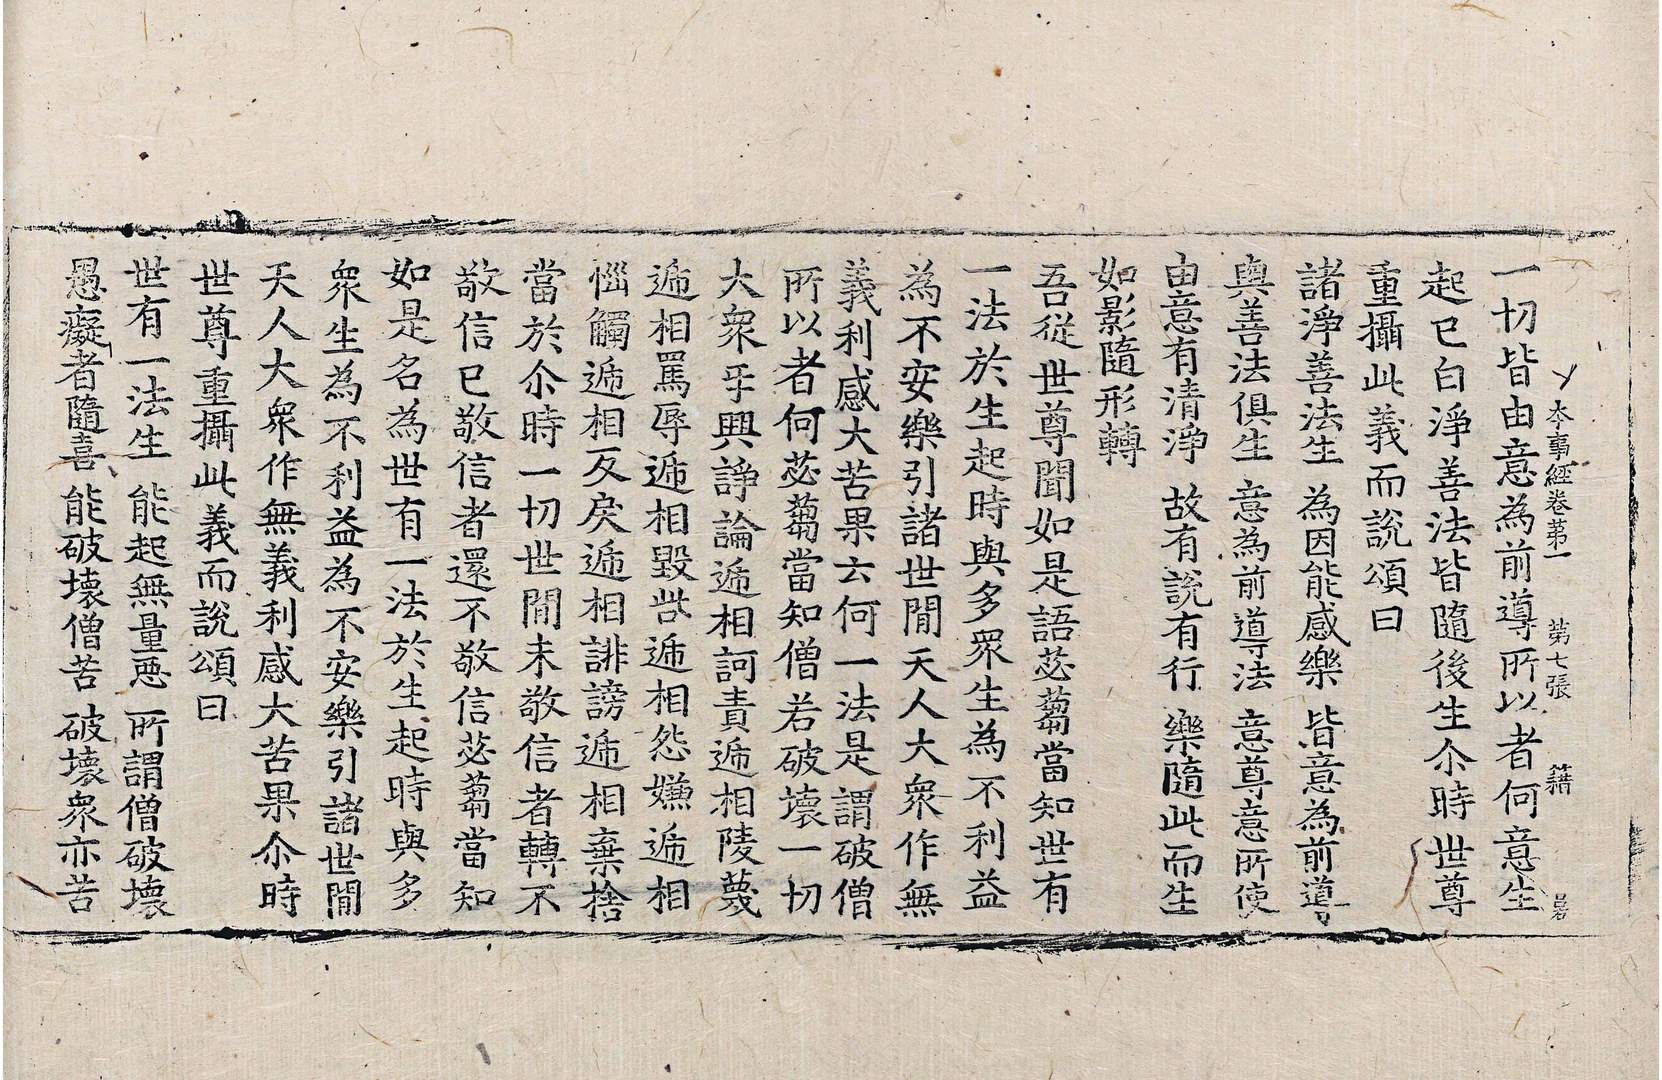 本事經卷第一 第七張 籍
一切皆由意為前導所以者何意生
起已白淨善法皆隨後生尒時世尊
重攝此義而說頌曰
諸淨善法生 為因能感樂 皆意為前導
與善法俱生 意為前導法 意尊意所使
由意有清淨 故有說有行 樂隨此而生
如影隨形轉
吾從世尊聞如是語苾蒭當知世有
一法於生起時與多衆生為不利益
為不安樂引諸世閒天人大衆作無
義利感大苦果云何一法是謂破僧
所以者何苾蒭當知僧若破壞一切
大衆乎興諍論遞相訶責遞相陵蔑
遞相罵辱遞相毀呰遞相怨嫌遞相
惱觸遞相反戾遞相誹謗遞相棄捨
當於尒時一切世閒未敬信者轉不
敬信已敬信者還不敬信苾蒭當知
如是名為世有一法於生起時與多
衆生為不利益為不安樂引諸世閒
天人大衆作無義利感大苦果尒時
世尊重攝此義而說頌曰
世有一法生 能起無量惡 所謂僧破壞
愚癡者隨喜 能破壞僧苦 破壞衆亦苦